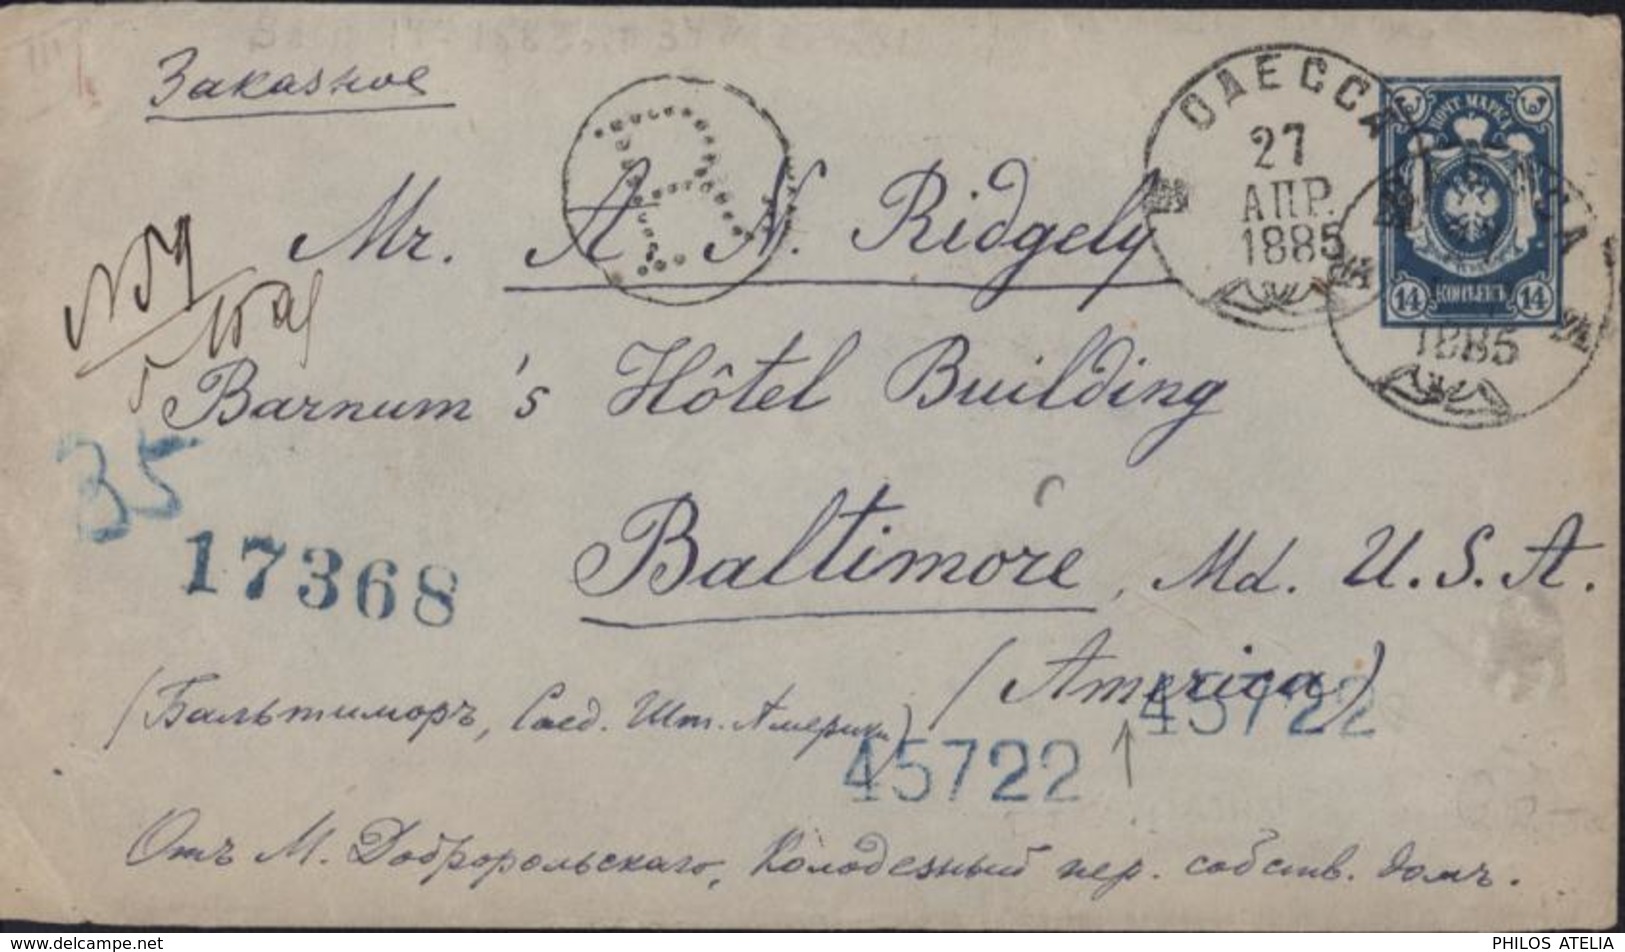 Заказное
ОДЕССА
27
АПР.
1885
ПОЧТ. МАРКА
14 КОПѢЕКЪ 14
1885
R
Mr. A N. Ridgely
Barnum's Hôtel Building
35
17368
Baltimore, Md. U. S. A.
(America)
45722
(Бальтиморъ, Соед. Шт. Америки)
45722
Отъ М. Добророльскаго, Колодезный пер. собств. домъ.
PHILOS ATELIA